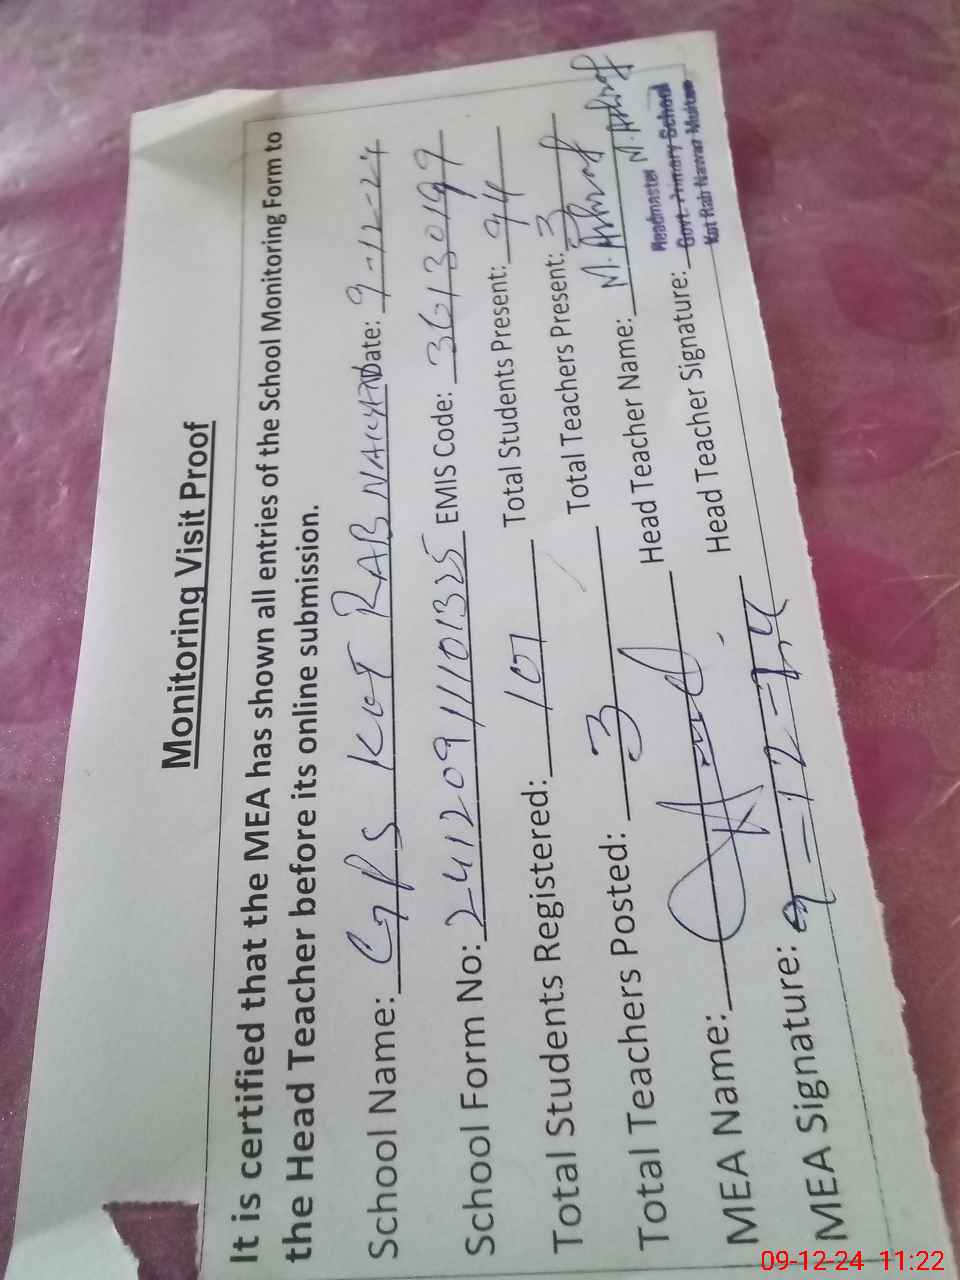 Monitoring Visit Proof
It is certified that the MEA has shown all entries of the School Monitoring Form to
the Head Teacher before its online submission.
School Name: GPS KOT RAB NAWAZ Date: 9-12-24
School Form No: 24120911101325 EMIS Code: 36130199
Total Students Registered: 107 Total Students Present: 94
Total Teachers Posted: 3 Total Teachers Present: 3
MEA Name: Head Teacher Name: M. Ashraf
MEA Signature: 9-12-24 Head Teacher Signature: M. Ashraf
Headmaster
Govt. Primary School
Kot Rab Nawaz Multan
09-12-24 11:22